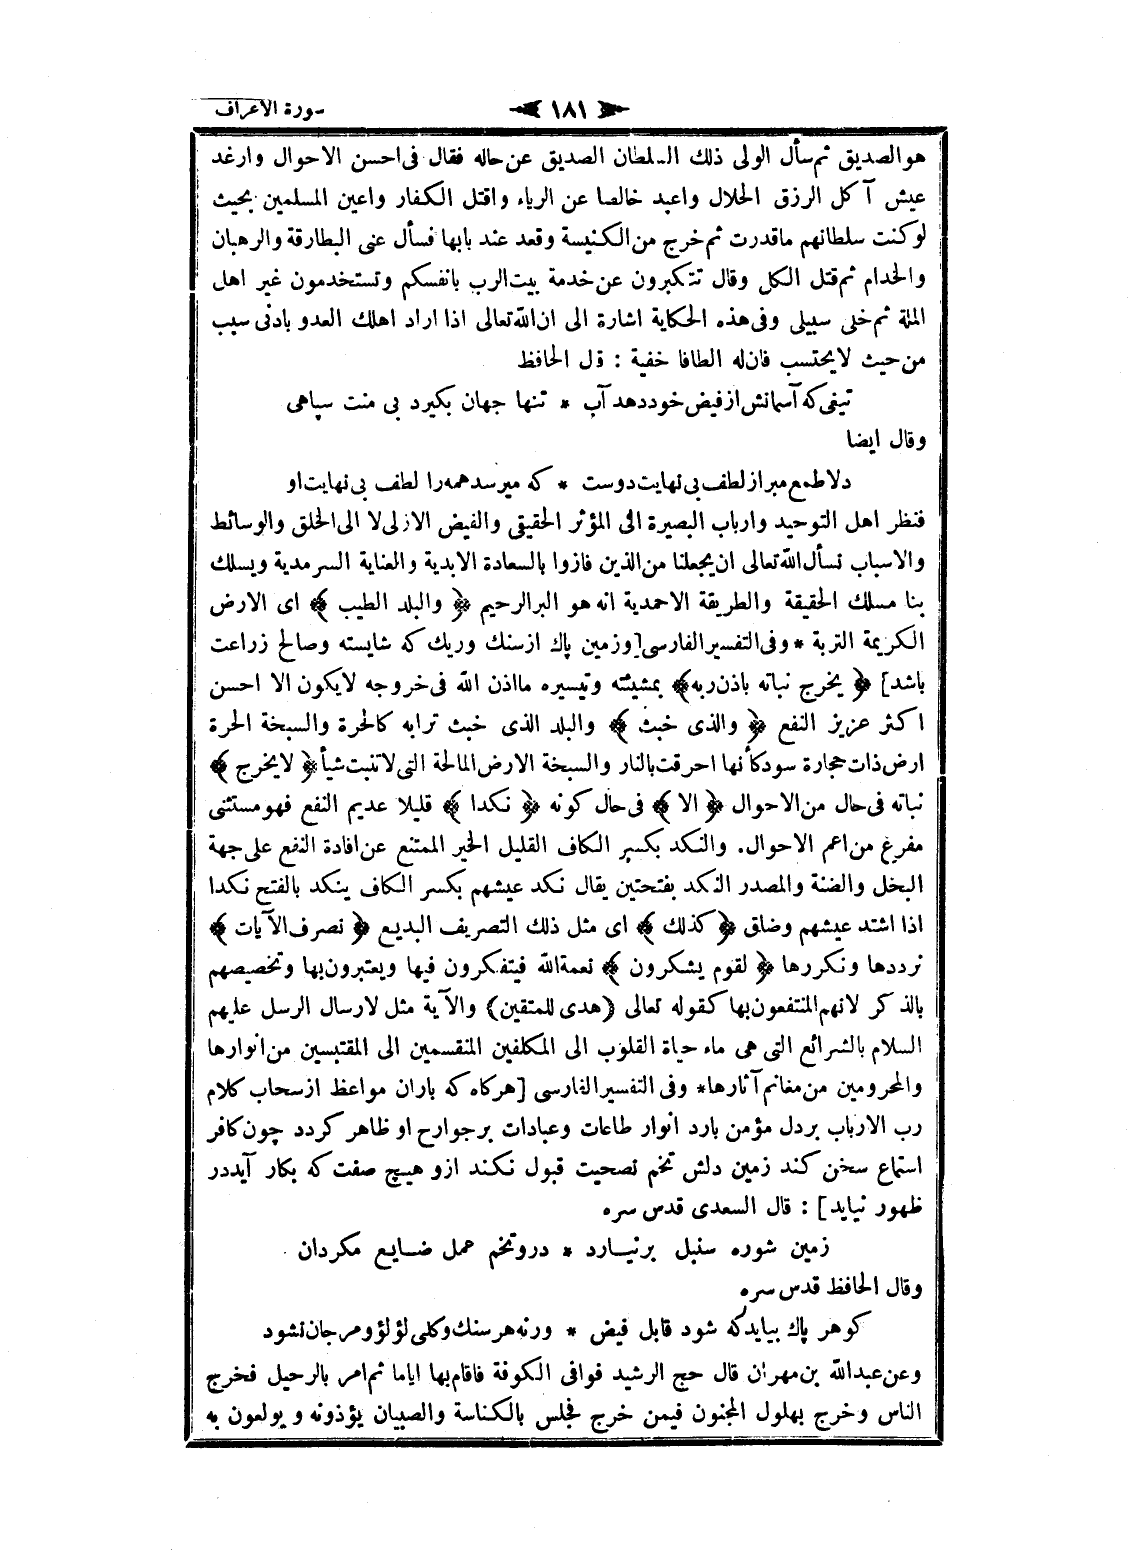 سورة الاعراف
١٨١
هو الصديق ثم سأل الولى ذلك السلطان الصديق عن حاله فقال فى احسن الاحوال وارغد
عيش آكل الرزق الحلال واعبد خالصا عن الرياء واقتل الكفار واعين المسلمين بحيث
لو كنت سلطانهم ماقدرت ثم خرج من الكنيسة وقعد عند بابها فسأل عنى البطارقة والرهبان
والخدام ثم قتل الكل وقال تتكبرون عن خدمة بيت الرب بانفسكم وتستخدمون غير اهل
الملة ثم خلى سبيلى وفى هذه الحكاية اشارة الى ان الله تعالى اذا اراد اهلك العدو بادنى سبب
من حيث لا يحتسب فان له الطافا خفية : قال الحافظ
تيغى كه آسمانش از فيض خود دهد آب * تنها جهان بكيرد بى منت سپاهى
وقال ايضا
دلا طمع مبر از لطف بى نهايت دوست * كه ميرسد همه را لطف بى نهايت او
فنظر اهل التوحيد وارباب البصيرة الى المؤثر الحقيقى والفيض الازلى لا الى الخلق والوسائط
والاسباب نسأل الله تعالى ان يجعلنا من الذين فازوا بالسعادة الابدية والعناية السرمدية ويسلك
بنا مسلك الحقيقة والطريقة الاحمدية انه هو البر الرحيم ﴿ والبلد الطيب ﴾ اى الارض
الكريمة التربة * وفى التفسير الفارسى [وزمين پاك ازسنك وريك كه شايسته وصالح زراعت
باشد] ﴿ يخرج نباته باذن ربه﴾ بمشيئته وتيسيره مااذن الله فى خروجه لايكون الا احسن
اكثر عزيز النفع ﴿ والذى خبث ﴾ والبلد الذى خبث ترابه كالحرة والسبخة الحرة
ارض ذات حجارة سود كأنها احرقت بالنار والسبخة الارض المالحة التى لاتنبت شيأ ﴿ لايخرج ﴾
نباته فى حال من الاحوال ﴿ الا ﴾ فى حال كونه ﴿ نكدا ﴾ قليلا عديم النفع فهو مستثنى
مفرغ من اعم الاحوال. والنكد بكسر الكاف القليل الخير الممتنع عن افادة النفع على جهة
البخل والضنة والمصدر النكد بفتحتين يقال نكد عيشهم بكسر الكاف ينكد بالفتح نكدا
اذا اشتد عيشهم وضاق ﴿ كذلك ﴾ اى مثل ذلك التصريف البديع ﴿ نصرف الآيات ﴾
نرددها ونكررها ﴿ لقوم يشكرون ﴾ نعمة الله فيتفكرون فيها ويعتبرون بها وتخصيصهم
بالذكر لانهم المنتفعون بها كقوله تعالى (هدى للمتقين) والآية مثل لارسال الرسل عليهم
السلام بالشرائع التى هى ماء حياة القلوب الى المكلفين المنقسمين الى المقتبسين من انوارها
والمحرومين من مغانم آثارها * وفى التفسير الفارسى [هركاه كه باران مواعظ ازسحاب كلام
رب الارباب بردل مؤمن بارد انوار طاعات وعبادات برجوارح او ظاهر كردد چون كافر
استماع سخن كند زمين دلش تخم نصحيت قبول نكند ازو هيچ صفت كه بكار آيد در
ظهور نيايد] : قال السعدى قدس سره
زمين شوره سنبل بر نيارد * درو تخم عمل ضايع مكردان
وقال الحافظ قدس سره
كوهر پاك ببايد كه شود قابل فيض * ورنه هر سنك وكلى لؤلؤ ومرجان نشود
وعن عبدالله بن مهران قال حج الرشيد فوافى الكوفة فاقام بها اياما ثم امر بالرحيل فخرج
الناس وخرج بهلول المجنون فيمن خرج فجلس بالكناسة والصبيان يؤذونه ويولعون به